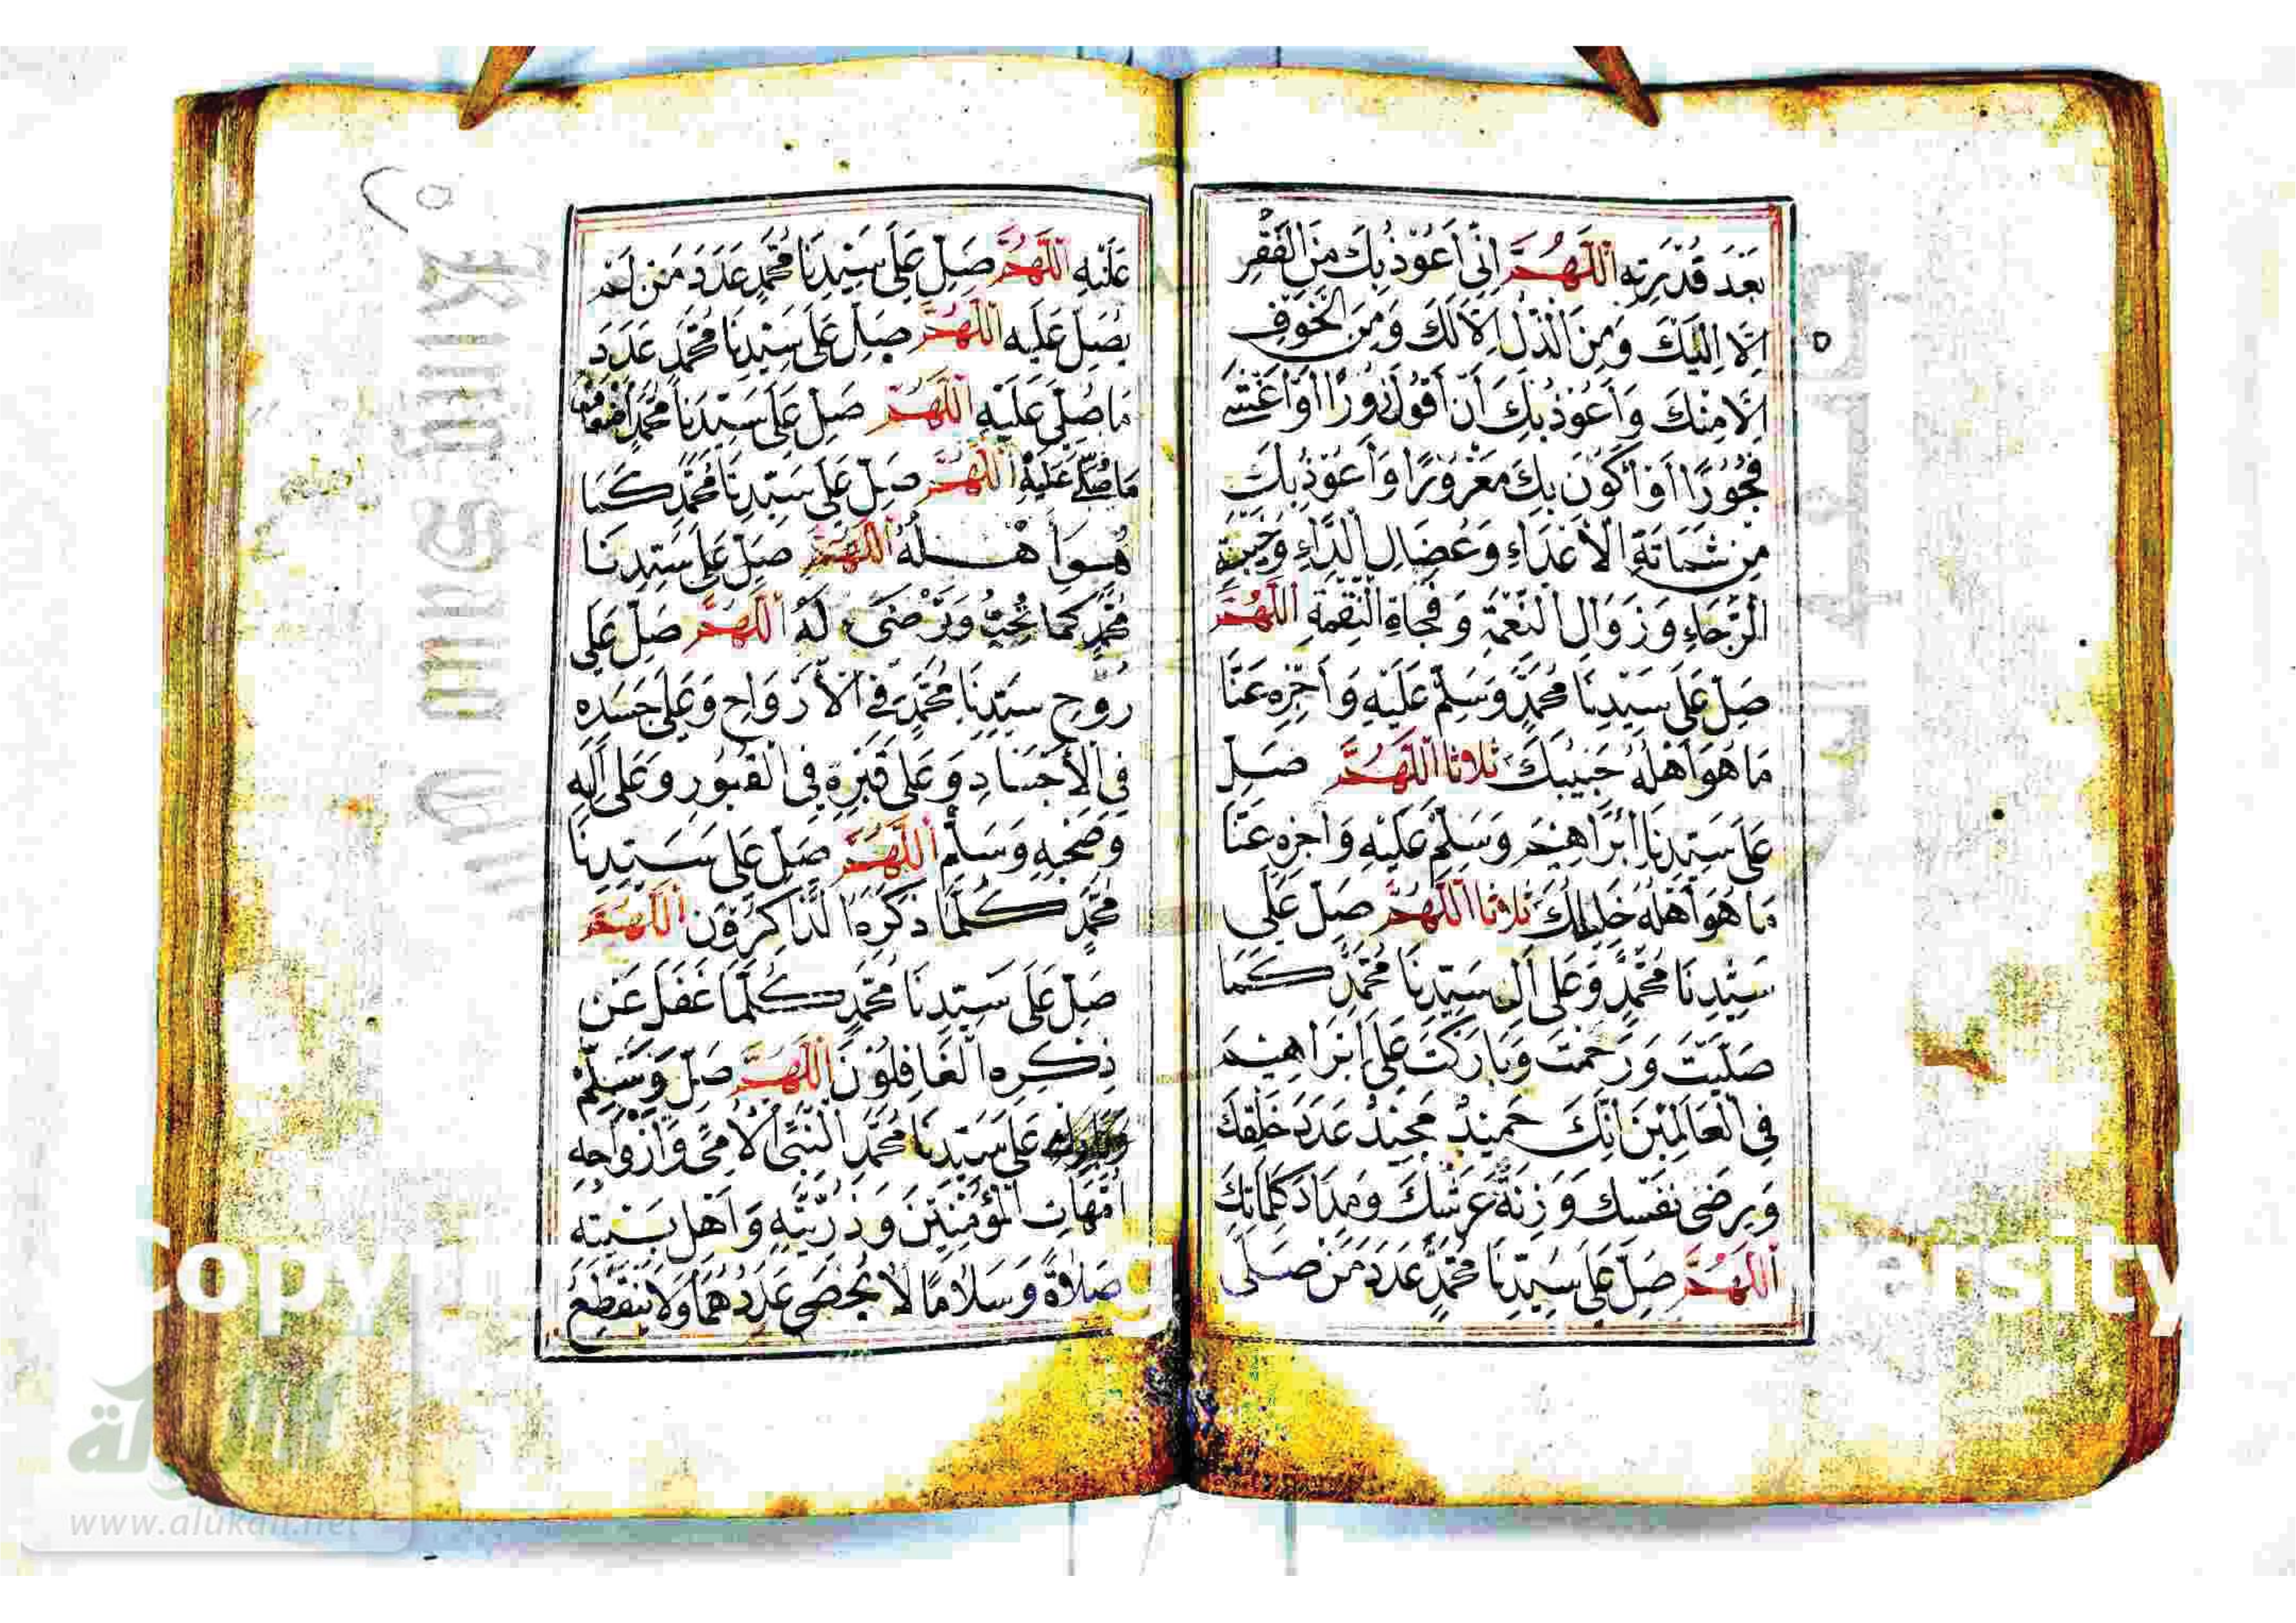 بَعْدَ قُدْرَتِهِ اَللّٰهُمَّ اِنِّي اَعُوْذُ بِكَ مِنَ الْفَقْرِ
اِلَّا اِلَيْكَ وَمِنَ الذُّلِّ اِلَّا لَكَ وَمِنَ الْخَوْفِ
اِلَّا مِنْكَ وَاَعُوْذُ بِكَ اَنْ اَقُوْلَ زُوْرًا اَوْ اَغْشٰى
فُجُوْرًا اَوْ اَكُوْنَ بِكَ مَغْرُوْرًا وَاَعُوْذُ بِكَ
مِنْ شَمَاتَةِ الْاَعْدَاءِ وَعُضَالِ الدَّاءِ وَخَيْبَةِ
الرَّجَاءِ وَزَوَالِ النِّعْمَةِ وَفُجَاةِ النِّقْمَةِ اَللّٰهُمَّ
صَلِّ عَلٰى سَيِّدِنَا مُحَمَّدٍ وَسَلِّمْ عَلَيْهِ وَاَجْزِهِ عَنَّا
مَا هُوَ اَهْلُهُ حَبِيْبِكَ ثلاثا اَللّٰهُمَّ صَلِّ
عَلٰى سَيِّدِنَا اِبْرَاهِيْمَ وَسَلِّمْ عَلَيْهِ وَاجْزِهِ عَنَّا
مَا هُوَ اَهْلُهُ خَلِيْلِكَ ثلاثا اَللّٰهُمَّ صَلِّ عَلٰى
سَيِّدِنَا مُحَمَّدٍ وَعَلٰى اٰلِ سَيِّدِنَا مُحَمَّدٍ كَمَا
صَلَّيْتَ وَرَحِمْتَ وَبَارَكْتَ عَلٰى اِبْرَاهِيْمَ
فِي الْعَالَمِيْنَ اِنَّكَ حَمِيْدٌ مَجِيْدٌ عَدَدَ خَلْقِكَ
وَرِضٰى نَفْسِكَ وَزِنَةَ عَرْشِكَ وَمِدَادَ كَلِمَاتِكَ
اَللّٰهُمَّ صَلِّ عَلٰى سَيِّدِنَا مُحَمَّدٍ عَدَدَ مَنْ صَلّٰى
عَلَيْهِ اَللّٰهُمَّ صَلِّ عَلٰى سَيِّدِنَا مُحَمَّدٍ عَدَدَ مَنْ لَمْ
يُصَلِّ عَلَيْهِ اَللّٰهُمَّ صَلِّ عَلٰى سَيِّدِنَا مُحَمَّدٍ عَدَدَ
مَا صُلِّيَ عَلَيْهِ اَللّٰهُمَّ صَلِّ عَلٰى سَيِّدِنَا مُحَمَّدٍ اَضْعَافَ
مَا صُلِّيَ عَلَيْهِ اَللّٰهُمَّ صَلِّ عَلٰى سَيِّدِنَا مُحَمَّدٍ كَمَا
هُوَ اَهْلُهُ اَللّٰهُمَّ صَلِّ عَلٰى سَيِّدِنَا
مُحَمَّدٍ كَمَا تُحِبُّ وَتَرْضٰى لَهُ اَللّٰهُمَّ صَلِّ عَلٰى
رُوْحِ سَيِّدِنَا مُحَمَّدٍ فِي الْاَرْوَاحِ وَعَلٰى جَسَدِهِ
فِي الْاَجْسَادِ وَعَلٰى قَبْرِهِ فِي الْقُبُوْرِ وَعَلٰى اٰلِهِ
وَصَحْبِهِ وَسَلِّمْ اَللّٰهُمَّ صَلِّ عَلٰى سَيِّدِنَا
مُحَمَّدٍ كُلَّمَا ذَكَرَهُ الذَّاكِرُوْنَ اَللّٰهُمَّ
صَلِّ عَلٰى سَيِّدِنَا مُحَمَّدٍ كُلَّمَا غَفَلَ عَنْ
ذِكْرِهِ الْغَافِلُوْنَ اَللّٰهُمَّ صَلِّ وَسَلِّمْ
عَلٰى سَيِّدِنَا مُحَمَّدٍ النَّبِيِّ الْاُمِّيِّ وَاَزْوَاجِهِ
اُمَّهَاتِ الْمُؤْمِنِيْنَ وَذُرِّيَّتِهِ وَاَهْلِ بَيْتِهِ
صَلَاةً وَسَلَامًا لَا يُحْصٰى عَدَدُهُمَا وَلَا يَنْقَطِعُ
www.alukah.net